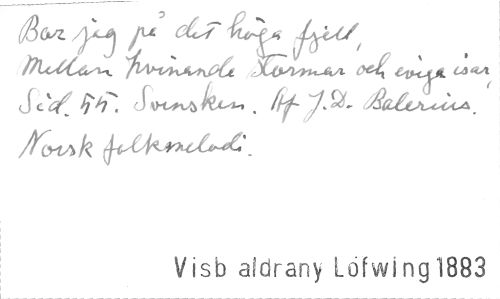 Bor jag på det höga fjell,
Mellan hvinande stormar och eviga isar,
Sid. 55. Svensken. Af J.D. Valerius.
Norsk folkmelodi.
Visb aldrany Löfwing 1883